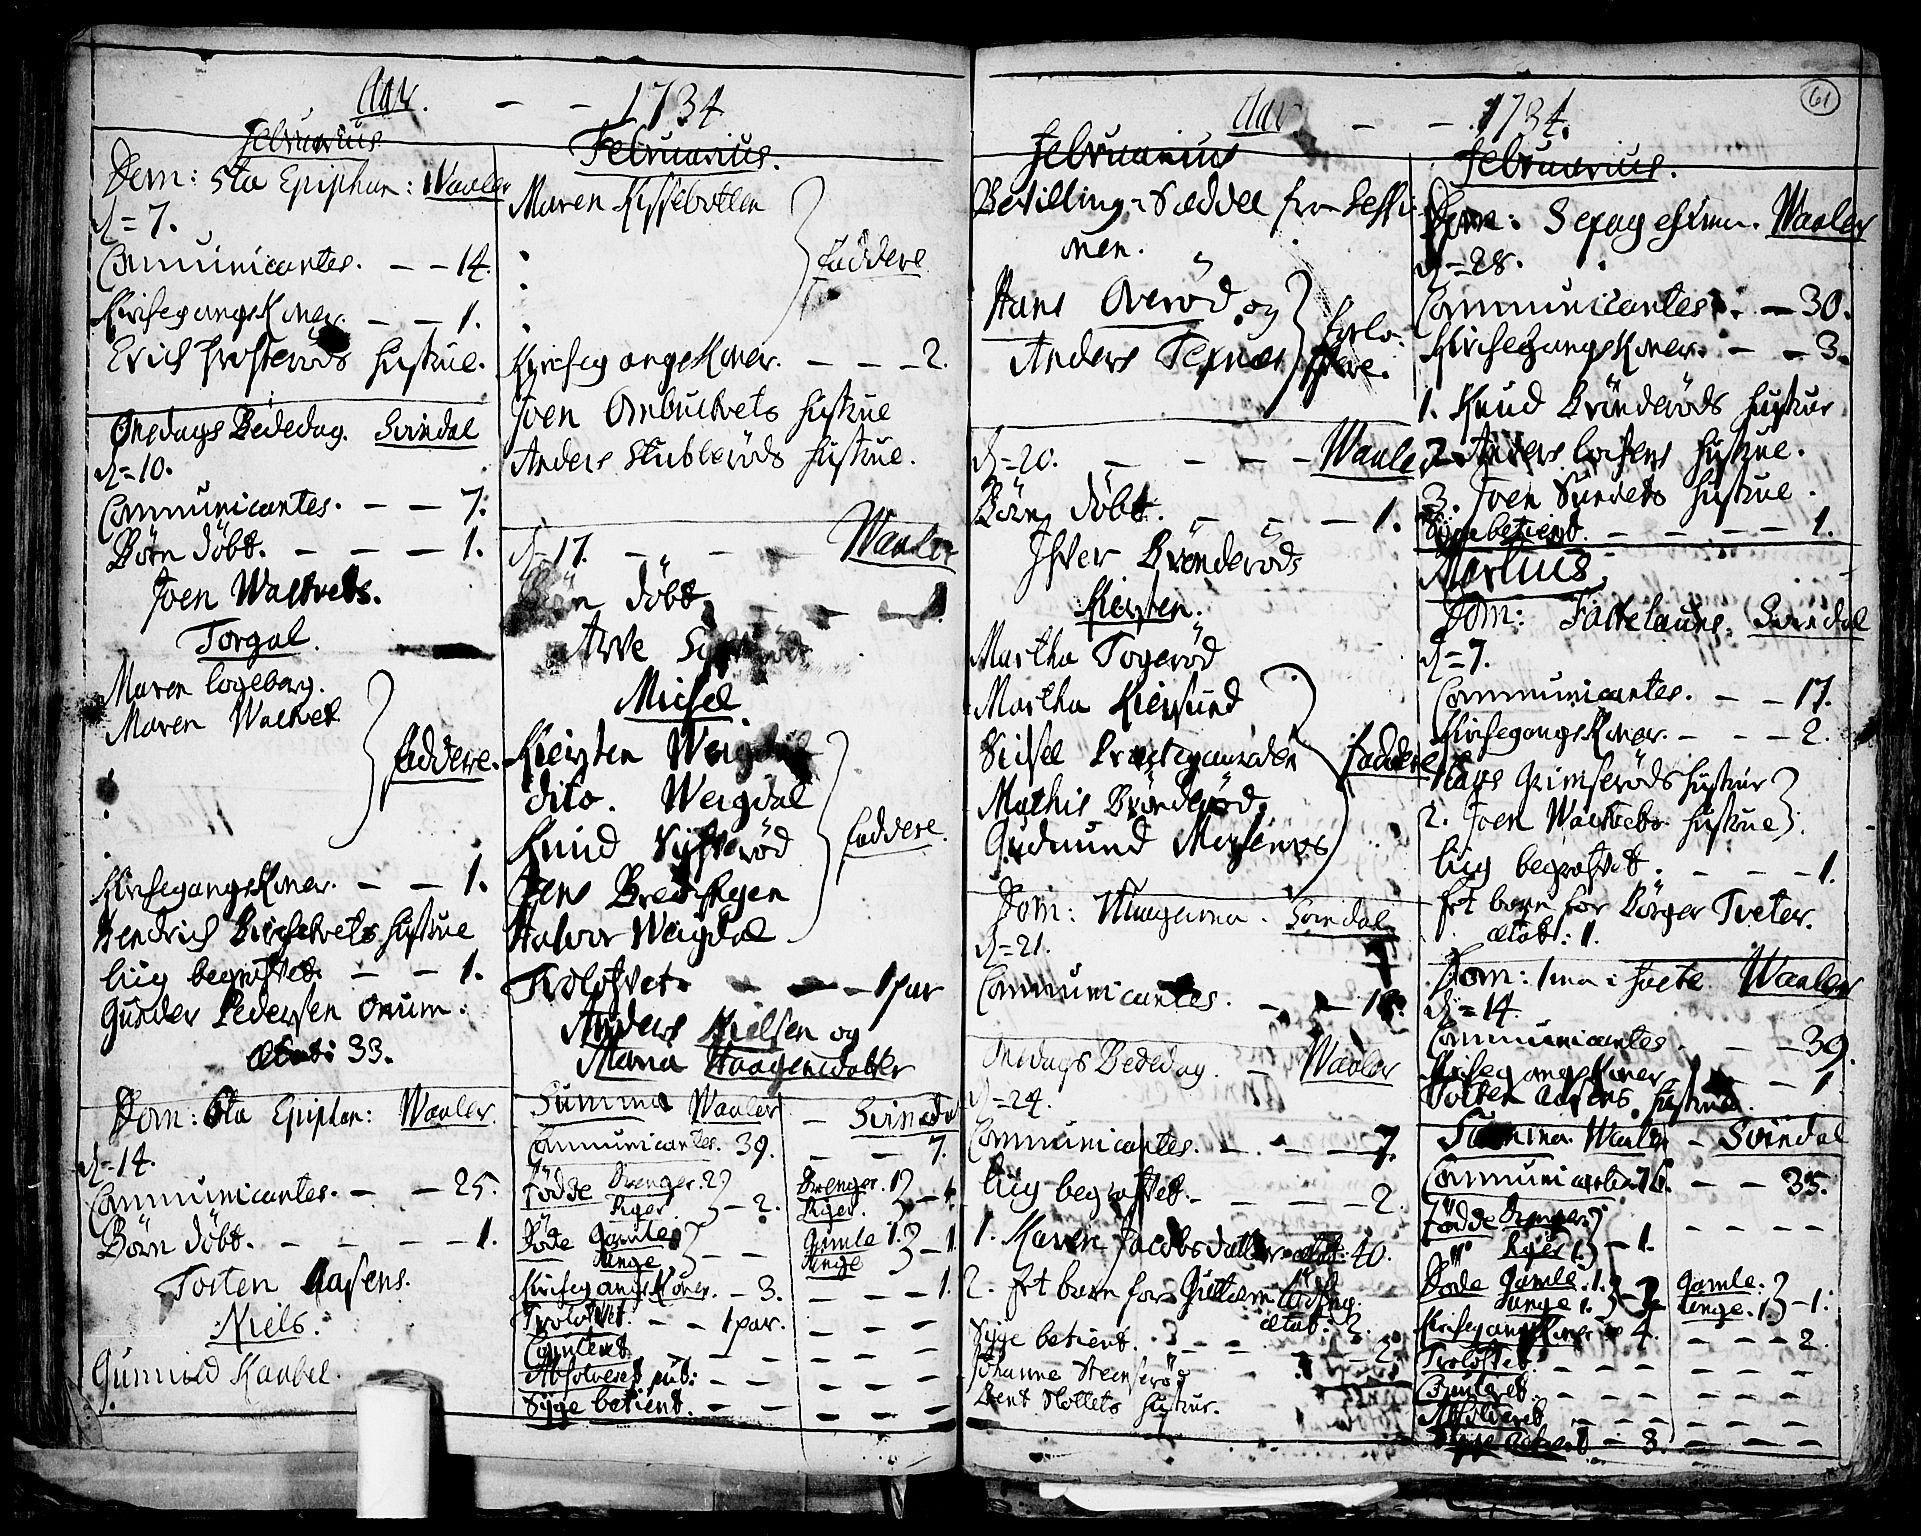 Aar. - - 1734
Februarius
Dom: 5ta Epiphan: Waaler
d = 7.
Communicantes. - - 14.
KirkegangsKoner. - - 1.
Erich Hustrue.
Onsdags Bededag. Svindal
d = 10.
Communicantes. - - 7.
Börn döbt. - - - 1.
Joen Waltvets.
Torgal.
Maren Logeberg.
Maren Waltvet
Faddere.
KirkegangsKoner. - - 1.
Hendrich Birchetvets Hustrue
Liig begraffvet. - - 1.
Gunder Pedersen Orum.
Ætat: 33.
Dom: 6ta Epiphan: Waaler.
d = 14.
Communicantes. - - 25.
Börn döbt. - - - - 1.
Tosten Aasens.
Niels.
Gunnild Kaabel.
Februarius.
Maren Kissebotten
Faddere
KirkegangsKoner. - - - 2.
Joen Ombultvets Hustrue
Anders Stubberöds Hustrue.
d = 17. - - - Waaler
Börn döbt. - - - 1.
Arve
Michel
Kiersten Weigdal
dito. Weigdal
Knud Sifteröd
Jens Bredsgen
Halvor Weigdal
Faddere.
Troloffvet. - - - 1 par
Anders Nielsen og
Maria Haagensdatter
Summa Waaler - Svindal
Communicantes. 39. - - 7.
Födde Drenger. 2 Drenger. 1
Piger. - 2. Piger. - 1.
Döde Gamle - - Gamle 1. - 1.
Unge Unge
KirkegangsKoner. - 3. - - - 1.
Troloffvet. - - 1 par. - - -
Copuleret - - - - - -
Absolveret pub: - - - - -
Syge betient. - - - - -
Aar - - 1734. 61
Februarius
Bevilling-Sæddel fra Sessi-
onen.
Hans Overöd og
Anders Texnæs
Forlo-
vere.
d = 20. - - - - Waaler
Börn döbt. - - - 1.
Iffver Brönderöds
Kiersten.
Martha Togeröd
Martha Kiersund
Sidsel
Mathis Brönderöd
Gudmund
Faddere
Dom: Septuagesima. Svindal
d = 21.
Communicantes. - - 18.
Onsdags Bededag. - Waaler
d = 24.
Communicantes. - - - 7.
Liig begraffvet. - - - 2.
1. Karen Jacobsdatter ætat: 40.
2. Et barn for Guttorm
ætat: 3.
Syge betient. - - - 2.
Johanne Steenseröd
Hustrue.
Februarius.
Dom: Sexagesima. Waaler
d = 28.
Communicantes. - 30.
KirkegangsKoner. - - 3.
1. Knud Brönderöds Hustrue
2. Anders Hustrue.
3. Joen Sundets Hustrue.
Syge betient. - - - 1.
Martius.
Dom: Fastelauns. Svindal
d = 7.
Communicantes. - - 17.
KirkegangsKoner. - - - 2.
1. Hans Grimseröds Hustrue
2. Joen Waltvets Hustrue
Liig begraffvet. - - - 1.
Et barn for Börger Tveter.
ætat: 1.
Dom: 1ma i Faste Waaler
d = 14.
Communicantes - - - 39.
KirkegangsKoner - - 1
Tosten Aasens Hustrue
Summa Waaler - Svindal
Communicantes 76. - - 35.
Födde Drenger - - - -
Piger 1. - 1.
Döde Gamle. 1. Gamle:
Unge 1. - 2. Unge. 1 - 1.
KirkegangsKoner 4. - - - 2.
Troloffvet. - - - - - -
Copuleret. - - - - - -
Absolveret - - - - - -
Syge betient - 3. - - - -